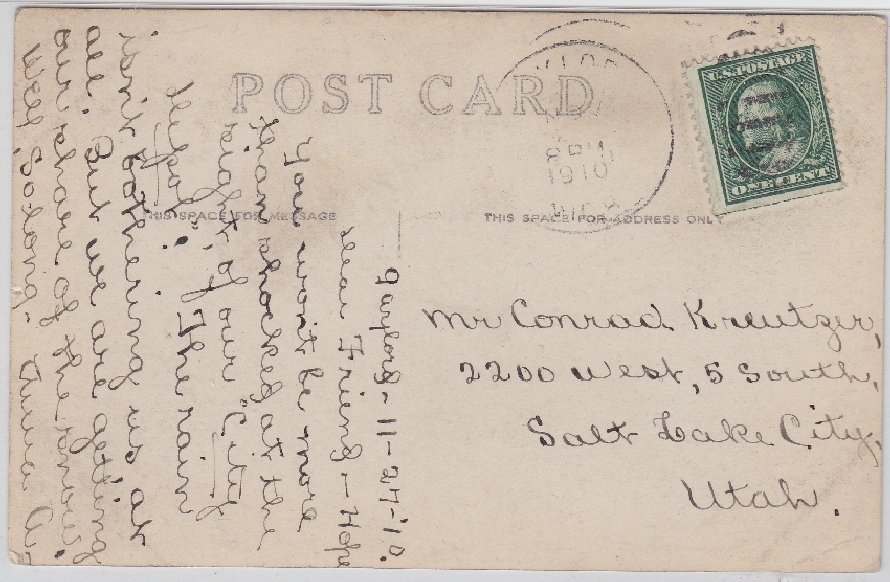 POST CARD
THIS SPACE FOR MESSAGE
THIS SPACE FOR ADDRESS ONLY
U.S. POSTAGE
ONE CENT
8 PM
1910
MICH
Gaylord - 11-27-'10.
Dear Friend - Hope
you won't be more
than shocked at the
sight, of our "City
The rain
isn't bothering us at
all. But we are getting
our share of the snow.
Well, So long - A
Mr Conrad Kreutzer,
2200 West, 5 South,
Salt Lake City,
Utah.